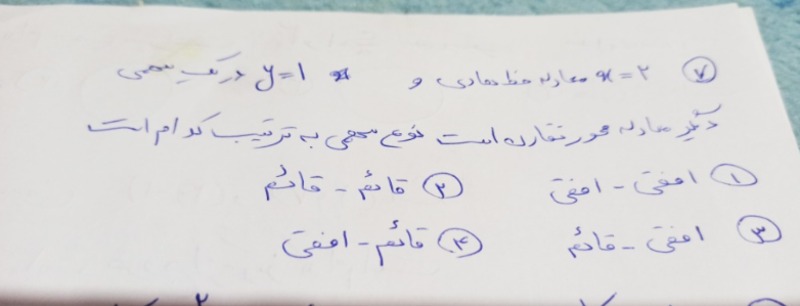 ۷ x=۲ معادله خط هادی و y=1 در یک سهمی
دیگر معادله محور تقارن است نوع سهمی به ترتیب کدام است
۱ افقی - افقی ۲ قائم - قائم
۳ افقی - قائم ۴ قائم - افقی